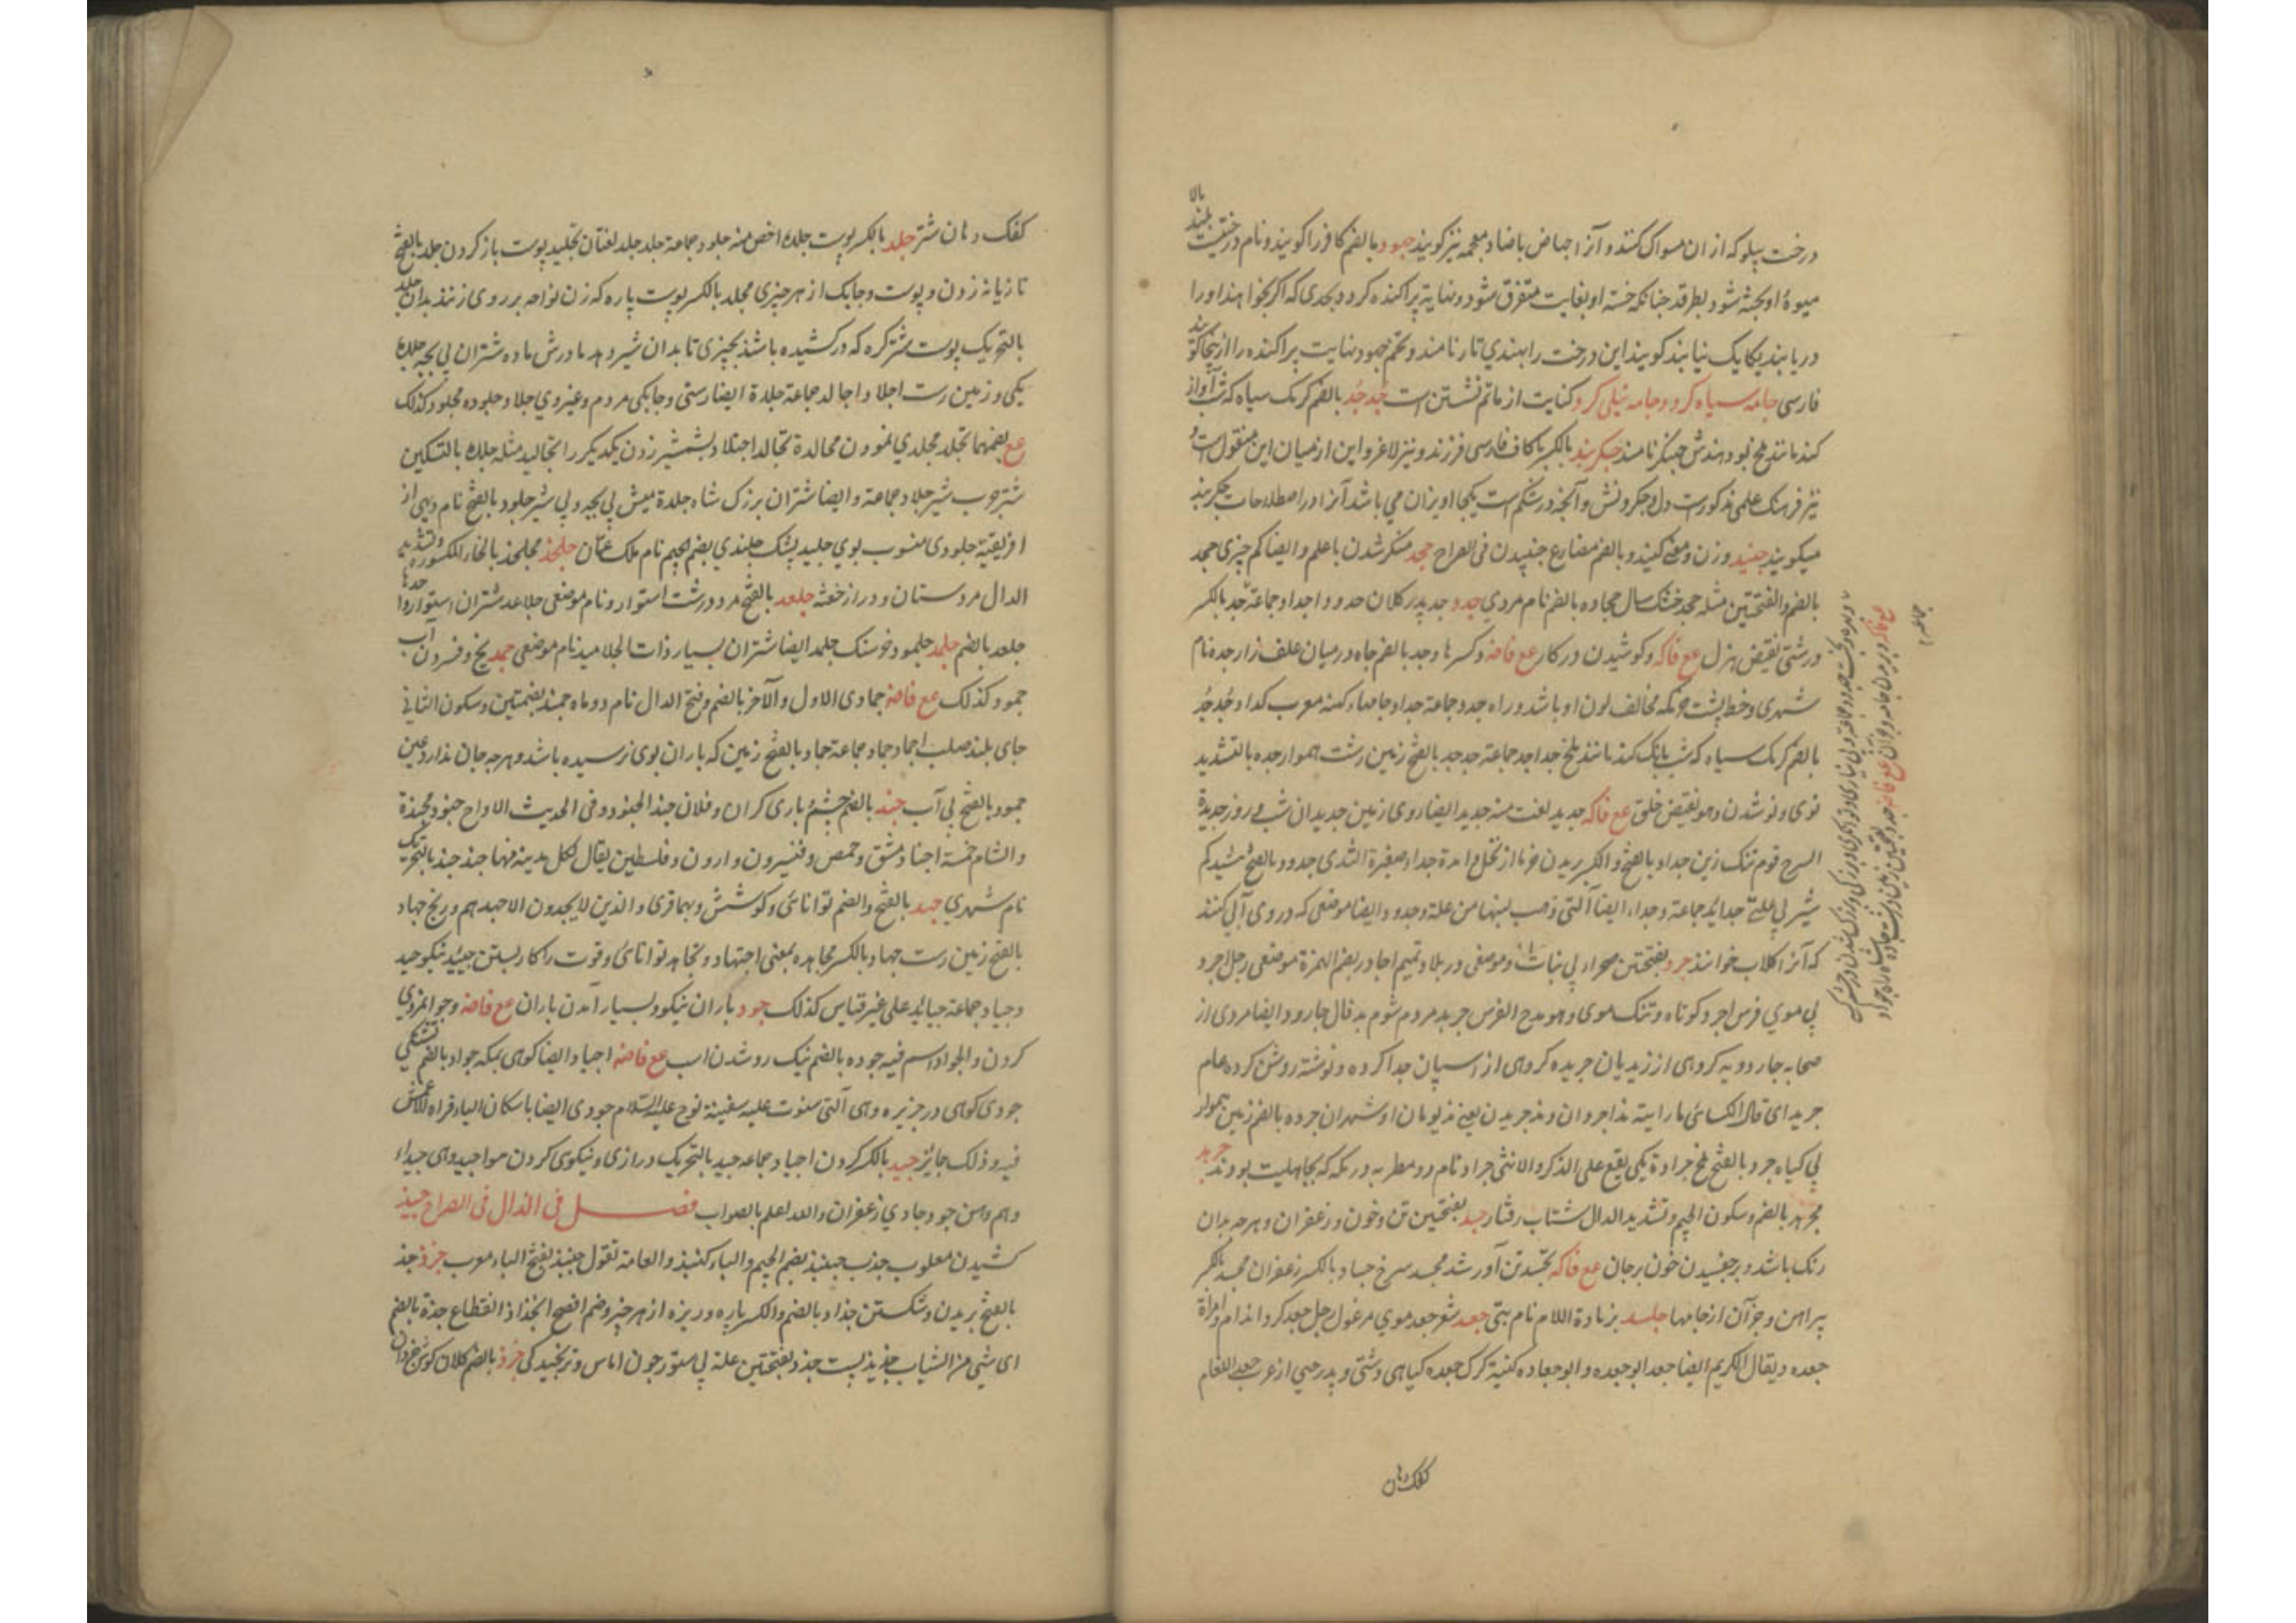 درخت پیلو که ازان مسواک کنند و آنرا جهاض باضاد معجمه نیز کویند جهود بالضم کافر را کویند و نام درختیست بلند بالا
میوهٔ او بخته شود بطرقد چنانکه خسته او بغایت متفرق شود و نهایت پراکنده کردد بحدی که اکر بخواهند او را
دریابند یکایک نیابند کویند این درخت را بهندی تار نامند و تخم جهود نهایت پراکنده را ازینجا کویند
فارسی جامه سیاه کرد و جامه نیلی کرد کنایت از ماتم نشستن است جُدجُد بالضم کرمک سیاه که شب آواز
کند مانند ملخ بود هندش جهینکر نامند جکربند بالکسر باکاف فارسی فرزند و نیز لاغر و این از میان این منقول است و
نیز فرهنک علمی مذکورست دل و جکر و شش و آنچه در شکم است یکجا اویزان می باشد آنرا در اصطلاحات جکربند
میکویند جنید وزن و معنی کنید و بالضم مضارع جنبیدن فی الصراح جحد منکر شدن باعلم و ایضا کم چیزی جحد
بالضم و الفتحتین مثله جحد خشک سال جحاده بالضم نام مردی جدد جد پدر کلان جدود اجداد جماعة جد بالکسر
درشتی نقیض هزل مع فاکه و کوشیدن در کار مع فاضه و کسرها وجد بالضم چاه در میان علف زار جده نام
شهری و خط پشت خر که مخالف لون او باشد و راه جدد جماعة جداد جامهاء کهنه معرب کداد جُدجُد
بالضم کرمک سیاه که شب بانک کند مانند ملخ جداجد جماعة جدجد بالفتح زمین درشت هموار جده بالتشدید
نوی و نو شدن و هو نقیض خلق مع فاکه جدید لغت منه جدید ایضا روی زمین جدیدان شب و روز جدیدة
السرج قوم تنک زین جداد بالفتح و الکسر بریدن خرما از نخل امراة جداء صغیرة الثدی جدود بالفتح میش کم
شیر بی علة جداید جماعة و جداء ایضا التی ذهب لبنها من علة وجدود ایضا موضعی که در وی آبی کنند
که آنرا کلاب خوانند جرد بفتحتین صحراء بی نبات و موضعی در بلاد تمیم اجارد بضم الهمزة موضعی رجل اجرد
بی موی فرس اجرد کوتاه و تنک موی و هو مدح الفرس جرید مردم شوم بد فال جارود ایضا مردی از
صحابه جارودیه کروهی از زیدیان جریده کروهی از اسپان جدا کرده و نوشته روشن کرده عام
جرید ای قال الکسائی ما رایته مذ اجردان و مذ جریدن یعنی مذ یومان او شهران جرده بالضم زمین هموار
بی کیاه جراد بالفتح ملخ جرادة یکی یقع علی الذکر و الانثی جرادتان نام دو مطربه در مکه که بجاهلیت بودند جرید
مجرهد بالضم و سکون الجیم و تشدید الدال شتاب رفتار جسد بفتحتین تن و خون و زعفران و هرچه بدان
رنک باشد و برچفسیدن خون بر جان مع فاکه تجسد تن آور شد مجسد سرخ جساد بالکسر زعفران مجسد بالکسر
پیراهن و جز آن از جامها جلسد بزیادة اللام نام بتی جعد شعر جعد موی مرغول رجل جعد کرد اندام و امراة
جعده و یقال الکریم ایضا جعد ابو جعده و ابو جعاده کنیة کرک جعده کیاهی دشتی و پدر حیی از عرب جعد اللغام
کفک دهان
کفک دهان شتر جلد بالکسر پوست جلده اخص منه جلود جماعة جلد جلد لغتان تجلید پوست باز کردن جلد بالفتح
تازیانه زدن و پوست و چابک از هر چیزی مجلد بالکسر پوست پاره که زن نواحه بر روی زنند بدان جلد
بالتحریک پوست شتر کره که در کشیده باشند بچیزی تا بدان شیر دهد مادرش ماده شتران بی بچه جلده
یکی و زمین درست اجلاد و اجالد جماعة جلدة ایضا درستی و چابکی مردم و غیر وی جلاد و جلوده مجلود کذلک
مع بضمهما تجلد جلدی نمودن مجالدة تجالد اجتلاد بشمشیر زدن یکدیکر را تجالید مثله جلده بالتسکین
شتر چرب شیر جلاد جماعة و ایضا شتران بزرک شاه جلدة میش بی بچه و بی شیر جلود بالفتح نام دیهی از
افریقیة جلودی منسوب بوی جلید پشک جلندی بضم الجیم نام ملک عمّان جلخذ مجلخذ بالخاء المکسوره و تشدید
الدال مرد ستان و دراز خفته جلعد بالفتح مرد درشت استوار و نام موضعی جلاعد شتران استوار واحدها
جلعد بالضم جلمد جلمود خر سنک جلمد ایضا شتران بسیار ذات الجلامید نام موضعی جمد یخ و فسردن آب
جمود کذلک مع فاضه جمادی الاول و الآخر بالضم و فتح الدال نام دو ماه جمد بضمتین و سکون الثانی
جای بلند صلب اجماد جماد جماعة جماد بالفتح زمین که باران بوی نرسیده باشد و هرچه جان ندارد عین
جمود بالفتح بی آب جند بالضم حشم و یاری کران و فلان جند الجنود و فی الحدیث الارواح جنود مجندة
و الشام خمسة اجناد دمشق و حمص و قنسرون و اردن و فلسطین یقال لکل مدینه منها جند جند بالتحریک
نام شهری جهد بالفتح و الضم توانائی و کوشش و بهما قرئ و الذین لا یجدون الا جهدهم و رنج جهاد
بالفتح زمین درست جهاد بالکسر مجاهده بمعنی اجتهاد و تجاهد توانائی و قوت را کار بستن جیّد نیکو جید
و جیاد جماعة جیائد علی غیر قیاس کذلک جود باران نیکو و بسیار آمدن باران مع فاضه و جوانمردی
کردن و الجواد اسم فیه جوده بالضم نیک رو شدن اسب مع فاضه اجیاد ایضا کوهی بمکه جواد بالضم تشنکی
جودی کوهی در جزیره و هی التی ستوت علیه سفینة نوح علیه السلام جودی ایضا باسکان الیاء قراه الاعمش
فیه و ذلک جایز جید بالکسر کردن اجیاد جماعه جید بالتحریک درازی و نیکوی کردن هو اجید و هی جیداء
و هم و هن جود جادی زعفران و الله اعلم بالصواب فصل فی الذال فی الصراح جبذ
کشیدن مقلوب جذب جنبذ بضم الجیم و الباء کنبذ و العامة تقول جنبذ بفتح الباء معرب جرذ جذ
بالفتح بریدن و شکستن جذاذ بالضم و الکسر پاره و ریزه از هر چیز و ضم افصح انجذاذ انقطاع جذة بالضم
ای شی من الثیاب جذیذ پست جرذ بفتحتین علة پی ستور چون اماس و ترنجیدکی جرذ بالضم کلان کوش خردان